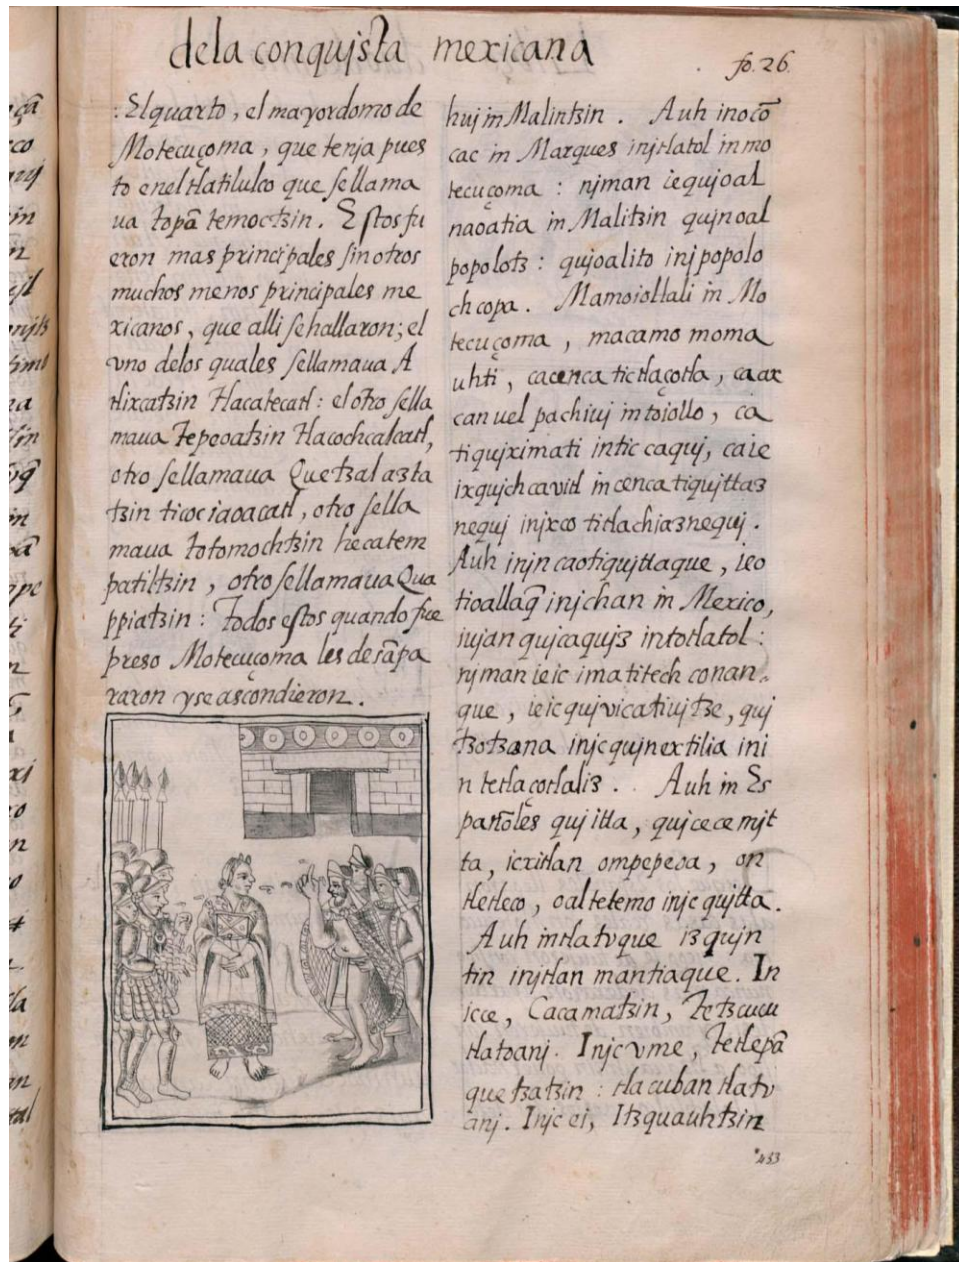 dela conqujsta mexicana
fo. 26.
: El quarto, el mayordomo de
Motecuçoma, que tenja pues
to enel tlatilulco que sellama
ua topā temoctzin. Estos fu
eron mas principales sin otros
muchos menos principales me
xicanos, que alli se hallaron; el
vno delos quales sellamaua A
tlixcatzin tlacatecatl: el otro sella
maua Tepeoatzin tlacochcalcatl,
otro sellamaua Quetzalazta
tzin ticociaoacatl, otro sella
maua totomochtzin hecatem
patiltzin, otro sellamaua Qua
ppiatzin: Todos estos quando fue
preso Motecuçoma les desāpa
raron y se ascondieron.
huj in Malintzin. Auh in ocō
cac in Marques injtlatol in mo
tecuçoma: njman ie qujoal
naoatia in Malitzin qujnoal
popolotz: qujoalito inj popolo
ch copa. Ma moiollali in Mo
tecuçoma, macamo moma
uhti, ca cenca tictlaçotla, ca ax
can uel pachiuj in toiollo, ca
tiqujximati in tic caquj, ca ie
ixqujch cavitl in cenca tiqujttaz
nequj injxco titlachiaznequj.
Auh injn ca otiqujttaque, ie o
tioallaq̄ injchan in Mexico,
iujan qujcaqujz in totlatol:
njman ie ic imatitech conan
que, ie ic qujvicatiujtze, quj
tzotzona injc qujnextilia ini
n tetlaçotlaliz. Auh in Es
pañoles quj itta, qujcecemjt
ta, icxitlan ompepeoa, on
tletleco, oaltetemo injc qujtta.
Auh in tlatvque izqujn
tin injtlan mantiaque. In
icce, Cacamatzin, Tetzcucu
tlatoanj. Injc vme, Tetlepā
quetzatzin: tlacuban tlatv
anj. Injc ei, Itzquauhtzin
433